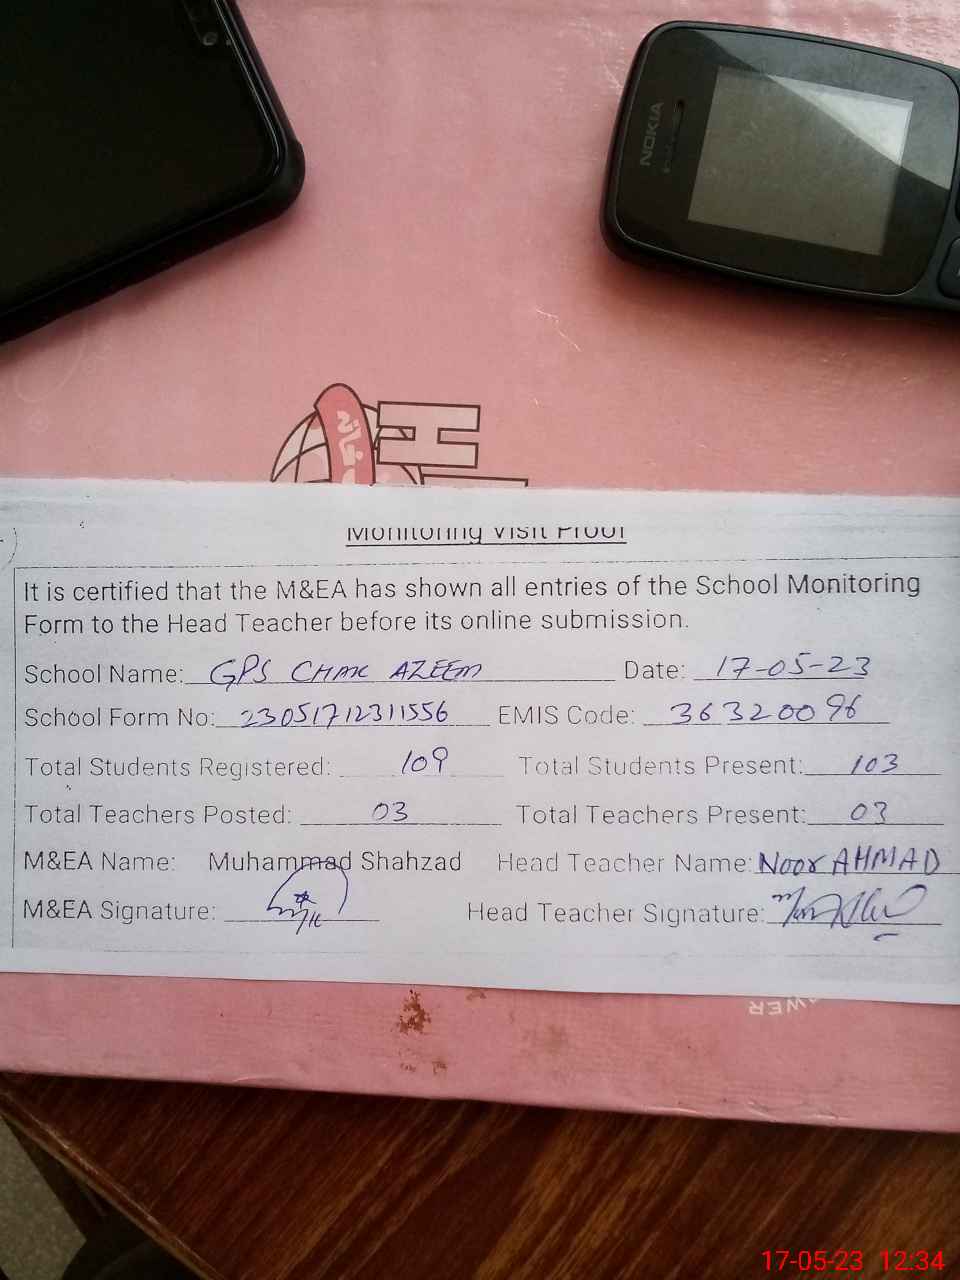 NOKIA
Monitoring Visit Proof
It is certified that the M&EA has shown all entries of the School Monitoring
Form to the Head Teacher before its online submission.
School Name: GPS CHAK AZEEM Date: 17-05-23
School Form No: 23051712311556 EMIS Code: 36320096
Total Students Registered: 109 Total Students Present: 103
Total Teachers Posted: 03 Total Teachers Present: 03
M&EA Name: Muhammad Shahzad Head Teacher Name: Noor AHMAD
M&EA Signature: Head Teacher Signature:
17-05-23 12:34